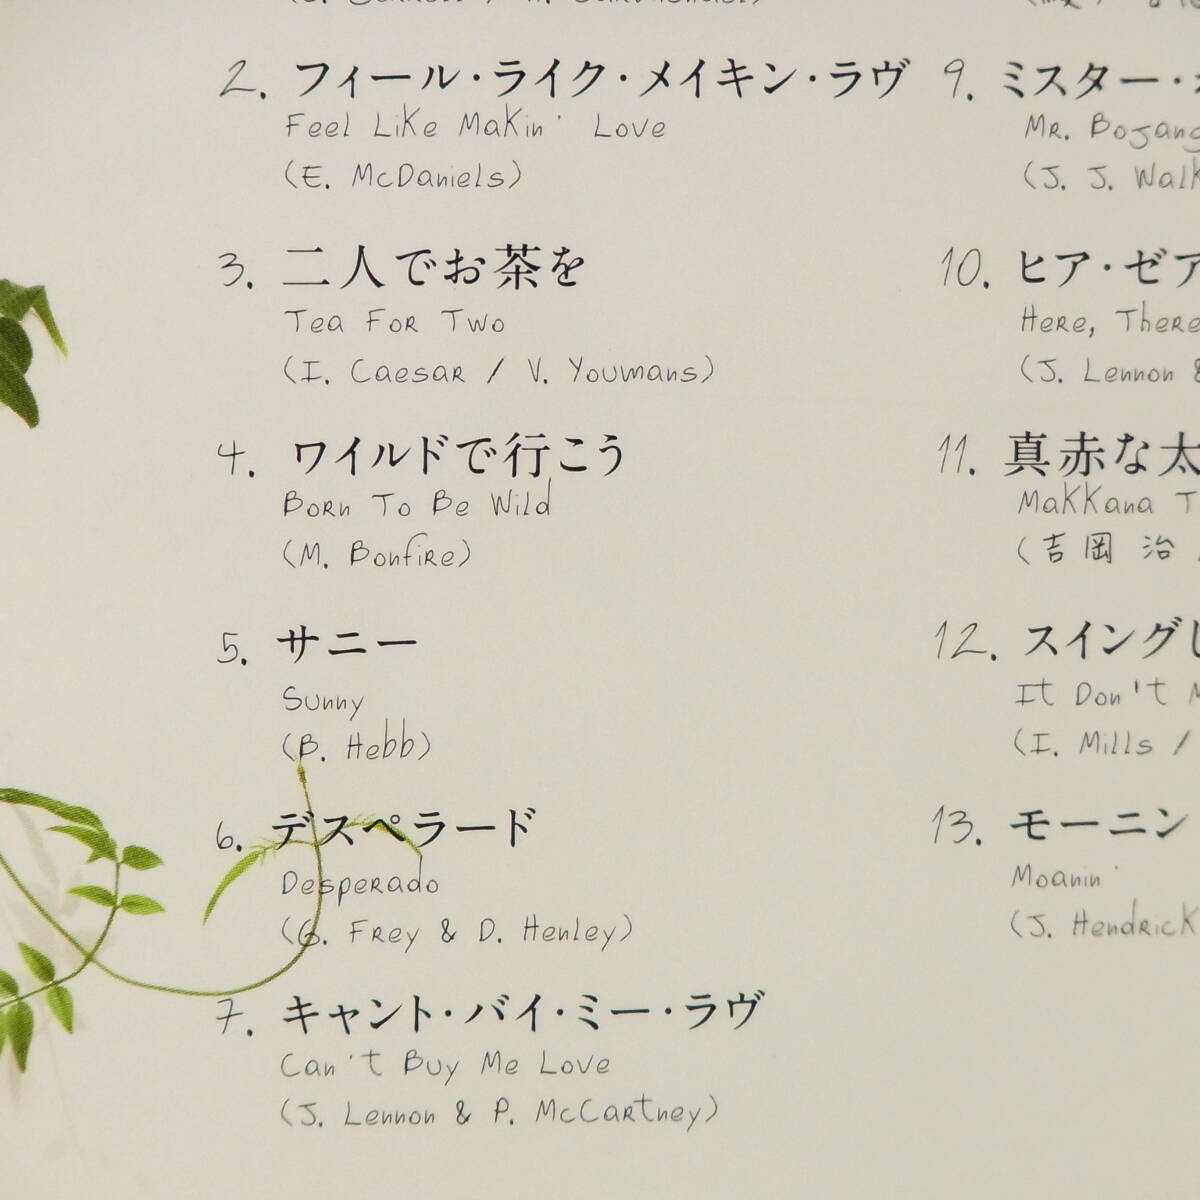 2. フィール・ライク・メイキン・ラヴ
Feel Like Makin' Love
(E. McDaniels)
3. 二人でお茶を
Tea For Two
(I. Caesar / V. Youmans)
4. ワイルドで行こう
Born To Be Wild
(M. Bonfire)
5. サニー
Sunny
(B. Hebb)
6. デスペラード
Desperado
(G. Frey & D. Henley)
7. キャント・バイ・ミー・ラヴ
Can't Buy Me Love
(J. Lennon & P. McCartney)
9. ミスター・
Mr. Bojang
(J. J. Walk
10. ヒア・ゼア
Here, There
(J. Lennon &
11. 真赤な太
Makkana T
(吉岡 治 /
12. スイングし
It Don't M
(I. Mills /
13. モーニン
Moanin'
(J. Hendrick